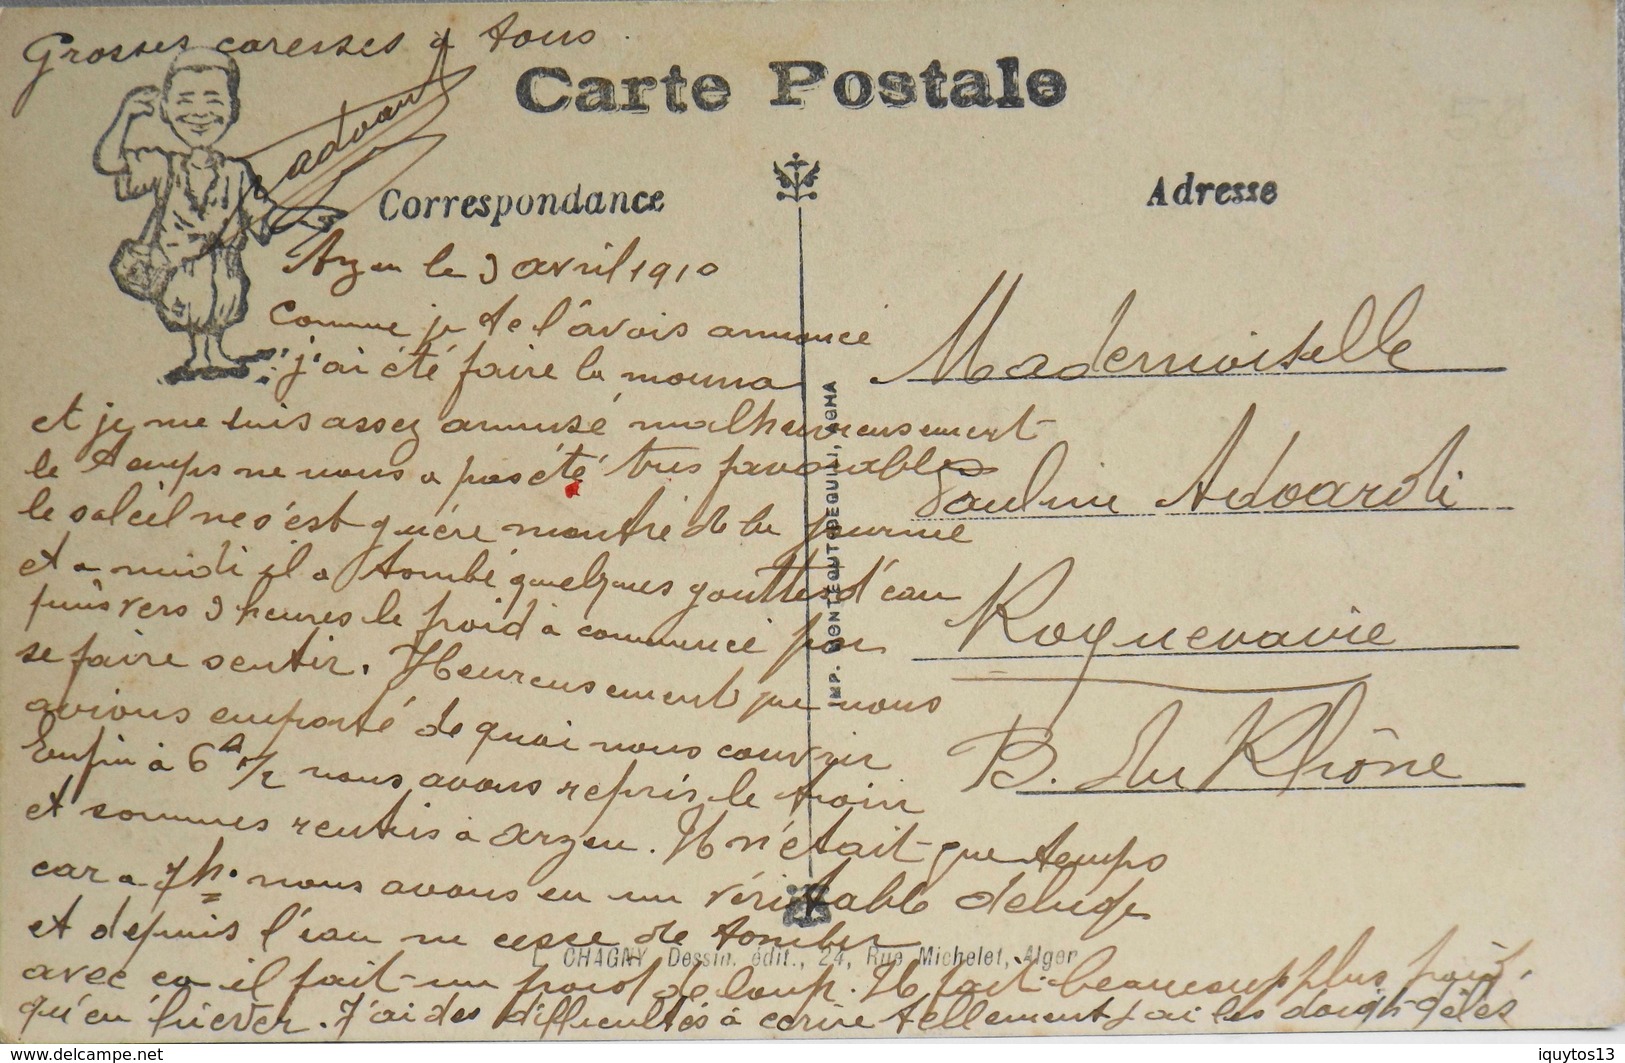 Grosses caresses à tous.
Carte Postale
Correspondance
Adresse
Arzeu le 3 avril 1910
Comme je te l'avais annoncé
j'ai été faire la mouna
et je me suis assez amusé malheureusement
le temps ne nous a pas été très favorable
le soleil ne s'est guère montré de la journée
et a midi il a tombé quelques gouttes d'eau
puis vers 3 heures le froid à commencé par
se faire sentir. Heureusement que nous
avions emporté de quoi nous couvrir
Enfin à 6h 1/2 nous avons repris le train
et sommes rentrés à Arzeu. Il n'était que temps
car a 7h. nous avons eu un véritable déluge
et depuis l'eau ne cesse de tomber
avec ça il fait un froid de loup. Il fait beaucoup plus froid
qu'en hiver. J'ai des difficultés à ecrire tellement j'ai les doigts gelés
Mademoiselle
Pauline Advardi
Roquevaire
B. du Rhône
L. CHAGNY Dessin. édit., 24, Rue Michelet, Alger
iquytos13